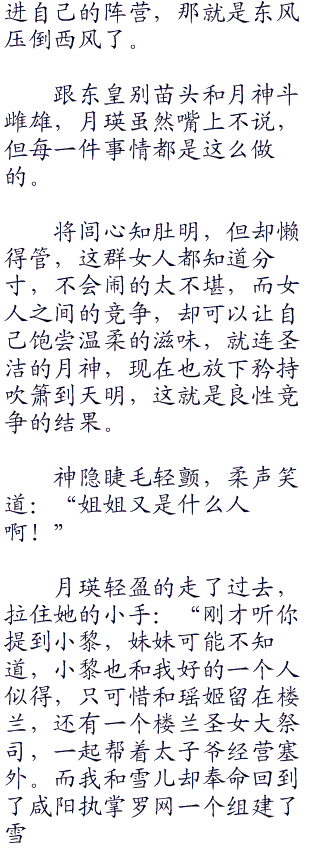 进自己的阵营，那就是东风
压倒西风了。
跟东皇别苗头和月神斗
雌雄，月瑛虽然嘴上不说，
但每一件事情都是这么做
的。
将闾心知肚明，但却懒
得管，这群女人都知道分
寸，不会闹的太不堪，而女
人之间的竞争，却可以让自
己饱尝温柔的滋味，就连圣
洁的月神，现在也放下矜持
吹箫到天明，这就是良性竞
争的结果。
神隐睫毛轻颤，柔声笑
道：“姐姐又是什么人
啊！”
月瑛轻盈的走了过去，
拉住她的小手：“刚才听你
提到小黎，妹妹可能不知
道，小黎也和我好的一个人
似得，只可惜和瑶姬留在楼
兰，还有一个楼兰圣女大祭
司，一起帮着太子爷经营塞
外。而我和雪儿却奉命回到
了咸阳执掌罗网一个组建了
雪